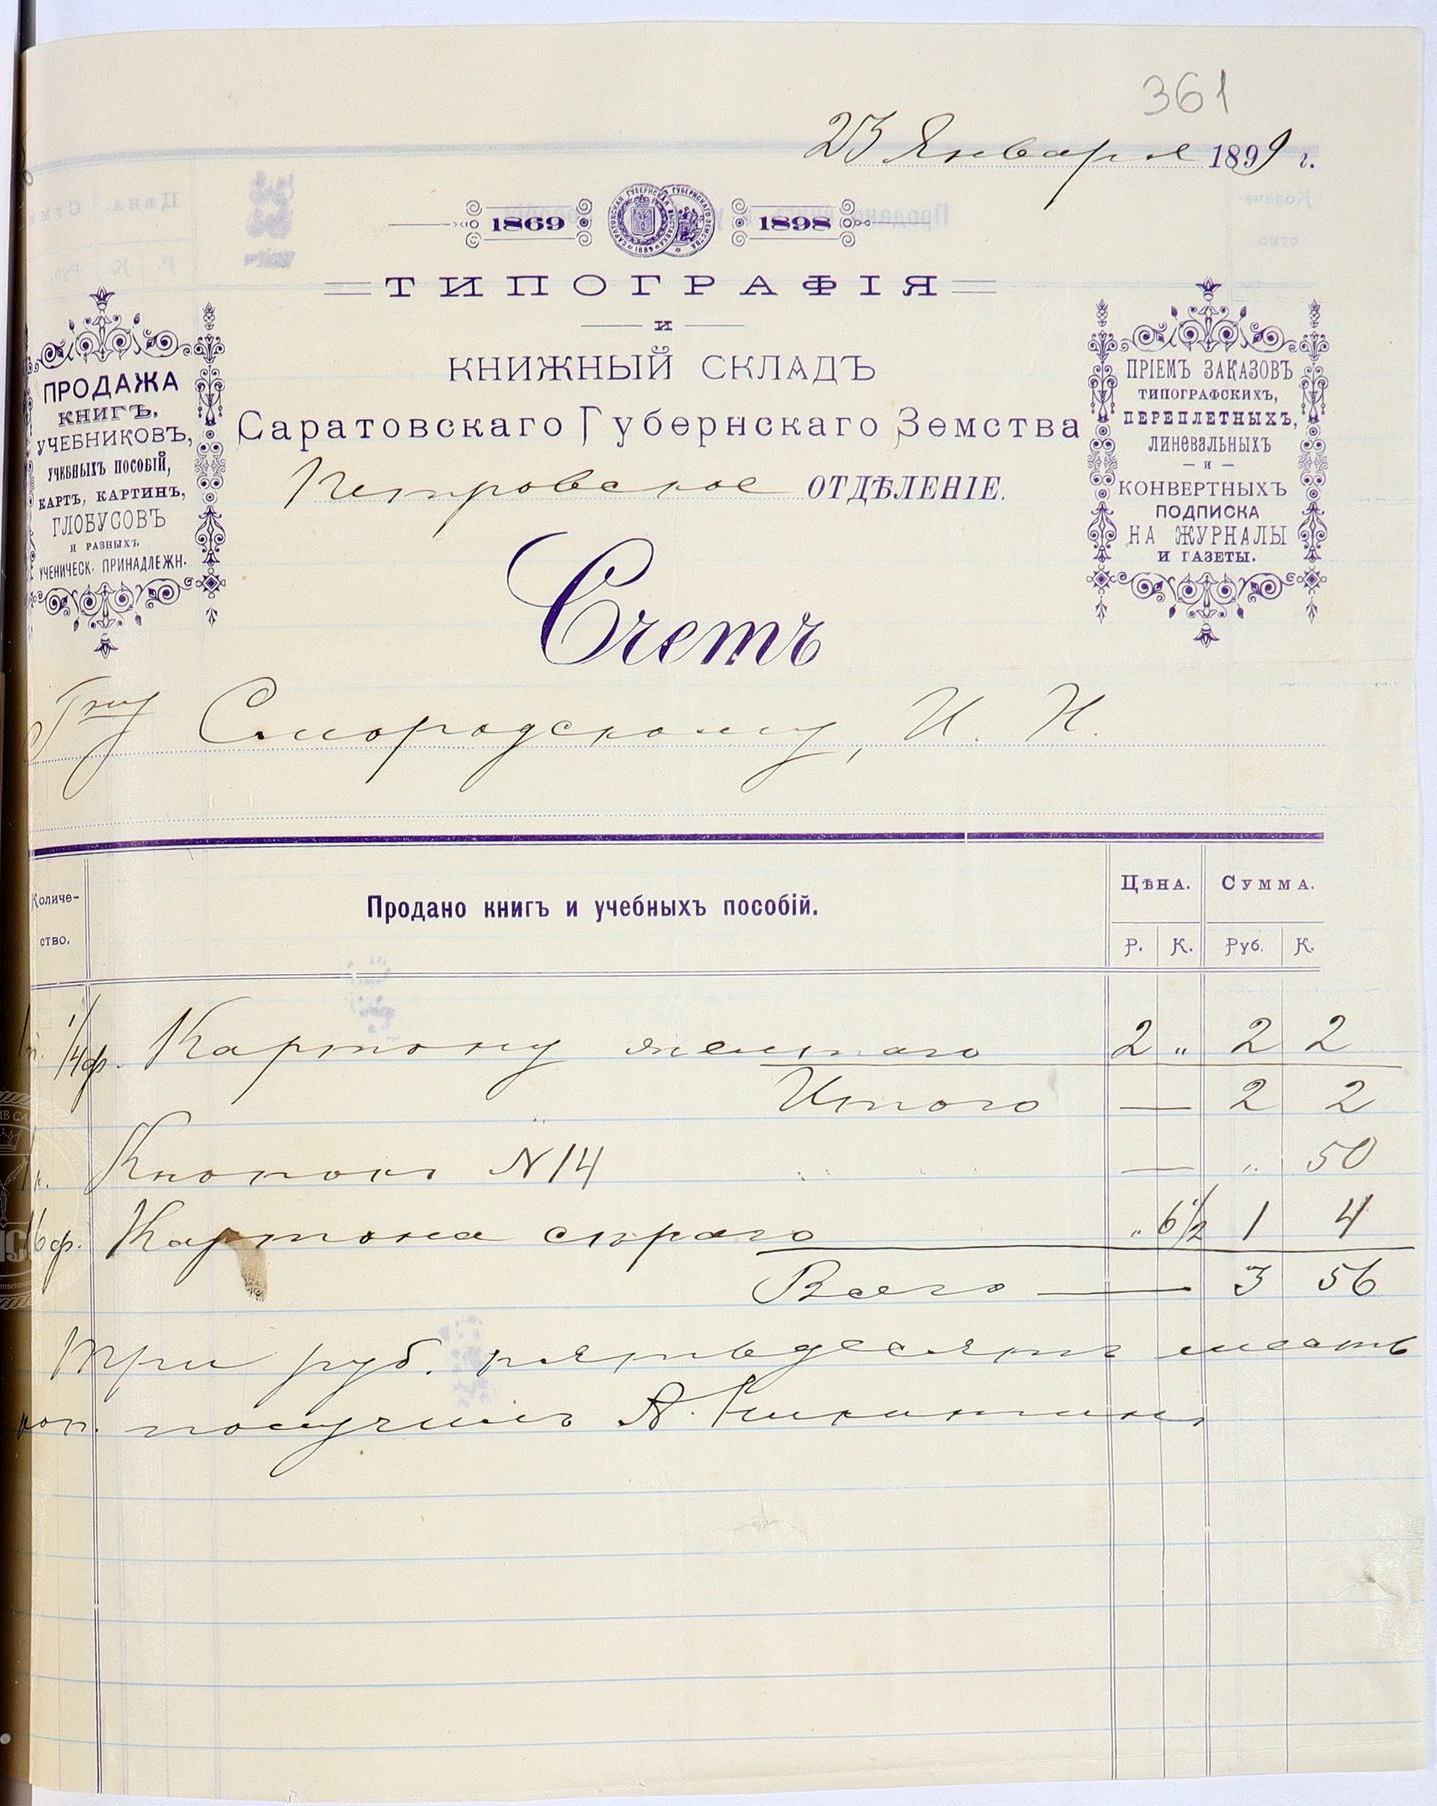 361
23 Января 1899 г.
1869 1898
ТИПОГРАФІЯ
и
КНИЖНЫЙ СКЛАДЪ
Саратовскаго Губернскаго Земства
Петровское ОТДѢЛЕНІЕ.
ПРОДАЖА
КНИГЪ,
УЧЕБНИКОВЪ,
УЧЕБНЫХЪ ПОСОБІЙ,
КАРТЪ, КАРТИНЪ,
ГЛОБУСОВЪ
И РАЗНЫХЪ
УЧЕНИЧЕСК. ПРИНАДЛЕЖН.
ПРІЕМЪ ЗАКАЗОВЪ
ТИПОГРАФСКИХЪ,
ПЕРЕПЛЕТНЫХЪ,
ЛИНЕВАЛЬНЫХЪ
— И —
КОНВЕРТНЫХЪ
ПОДПИСКА
НА ЖУРНАЛЫ
И ГАЗЕТЫ.
Счетъ
Гну Смородскому, И. Н.
Количе-
ство.
Продано книгъ и учебныхъ пособій.
Цѣна. Сумма.
Р. К. Руб. К.
1/4 ф. Картону желтаго 2 „ 2 2
Итого — 2 2
1 к. Кнопокъ N 14 — „ 50
16 ф. Картона сѣраго „ 6 1/2 1 4
Всего — 3 56
Три руб. пятьдесятъ шесть
коп. получилъ А. Никитинъ